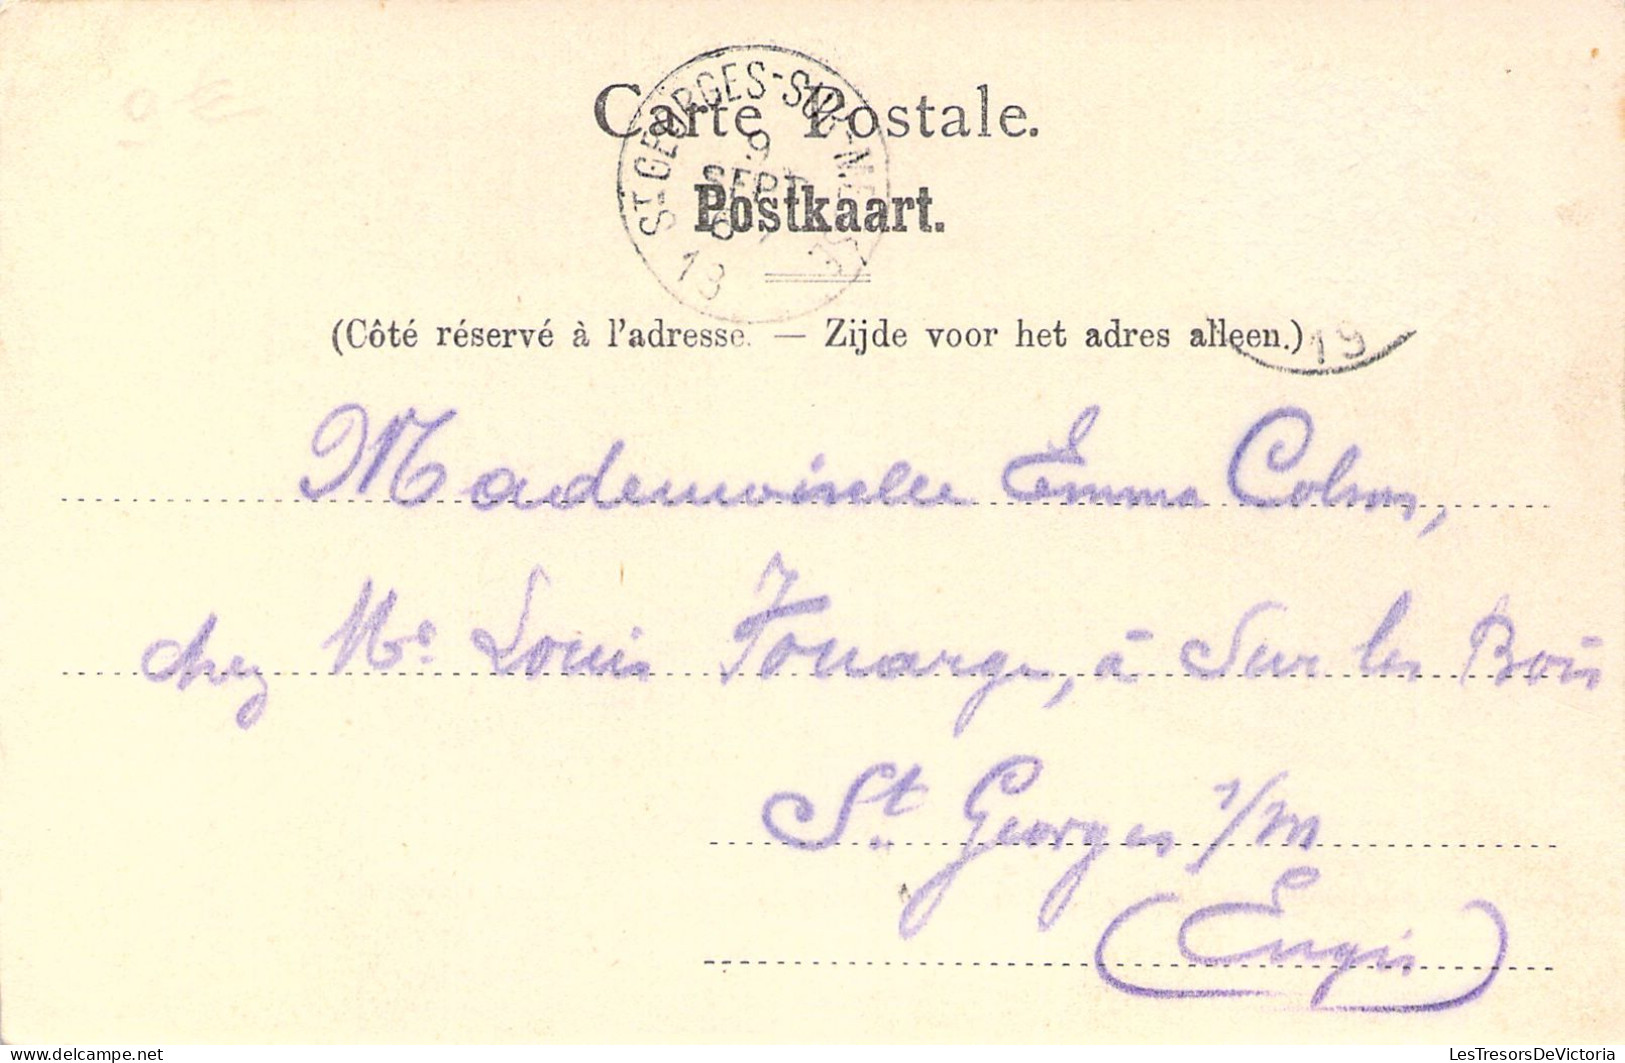 Carte Postale.
Postkaart.
ST GEORGES-SUR-M
9
SEPT
6
18
(Côté réservé à l'adresse. — Zijde voor het adres alleen.)
19
Mademoiselle Emma Colson,
chez Mr. Louis Fouarge, à Sur les Bois
St. Georges s/M
(Engis)
LesTresorsDeVictoria